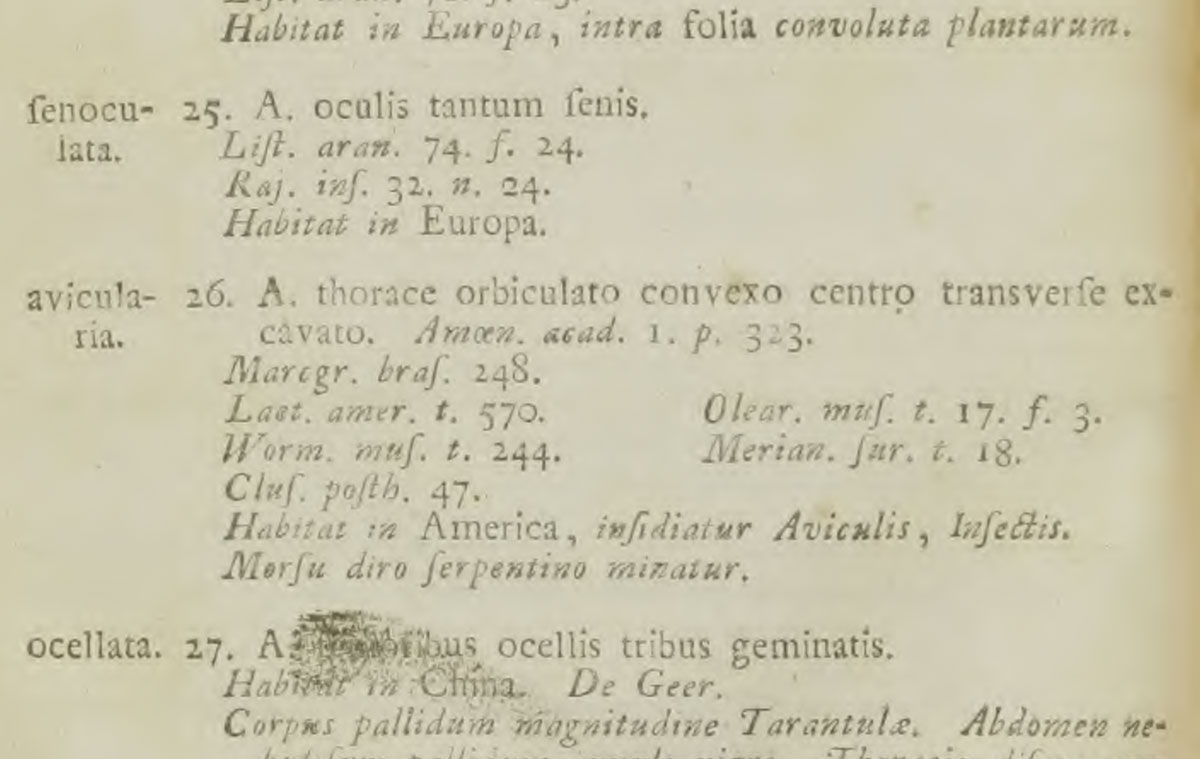 Habitat in Europa, intra folia convoluta plantarum.
ſenocu- 25. A. oculis tantum ſenis.
lata. Liſt. aran. 74. f. 24.
Raj. inſ. 32. n. 24.
Habitat in Europa.
avicula- 26. A. thorace orbiculato convexo centro transverſe ex-
ria. cavato. Amœn. acad. 1. p. 323.
Marcgr. braſ. 248.
Laet. amer. t. 570. Olear. muſ. t. 17. f. 3.
Worm. muſ. t. 244. Merian. ſur. t. 18.
Cluſ. poſth. 47.
Habitat in America, inſidiatur Aviculis, Inſectis.
Morſu diro ſerpentino minatur.
ocellata. 27. A. ocellis tribus geminatis.
Habitat in China. De Geer.
Corpus pallidum magnitudine Tarantulæ. Abdomen ne-